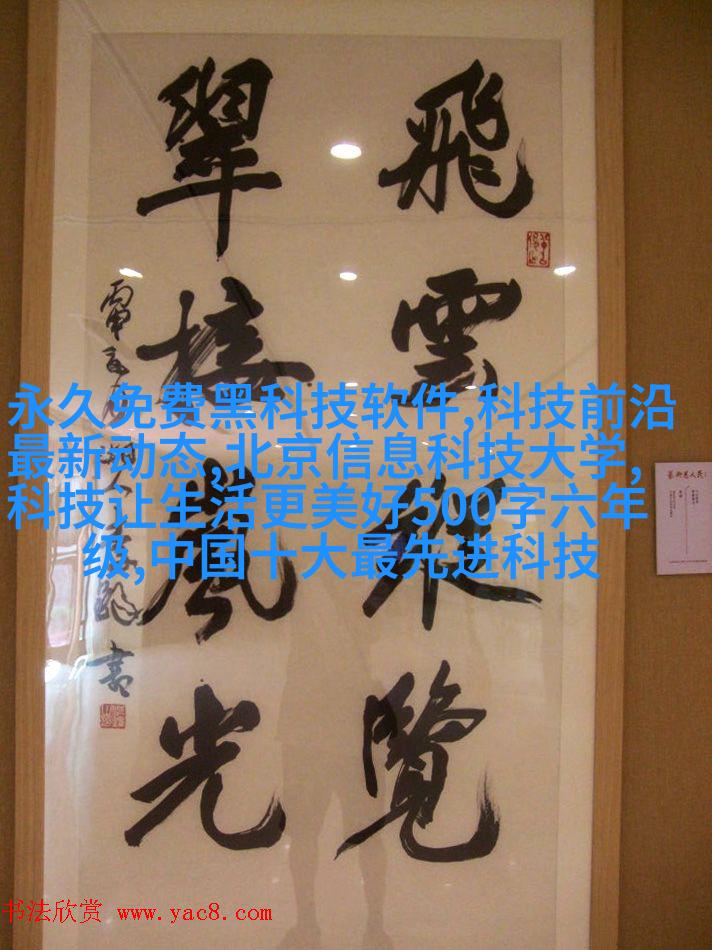 飛雲縱覽
翠接嵐光
書
永久免费黑科技软件,科技前沿
最新动态,北京信息科技大学,
科技让生活更美好500字六年
级,中国十大最先进科技
书法欣赏 www.yac8.com